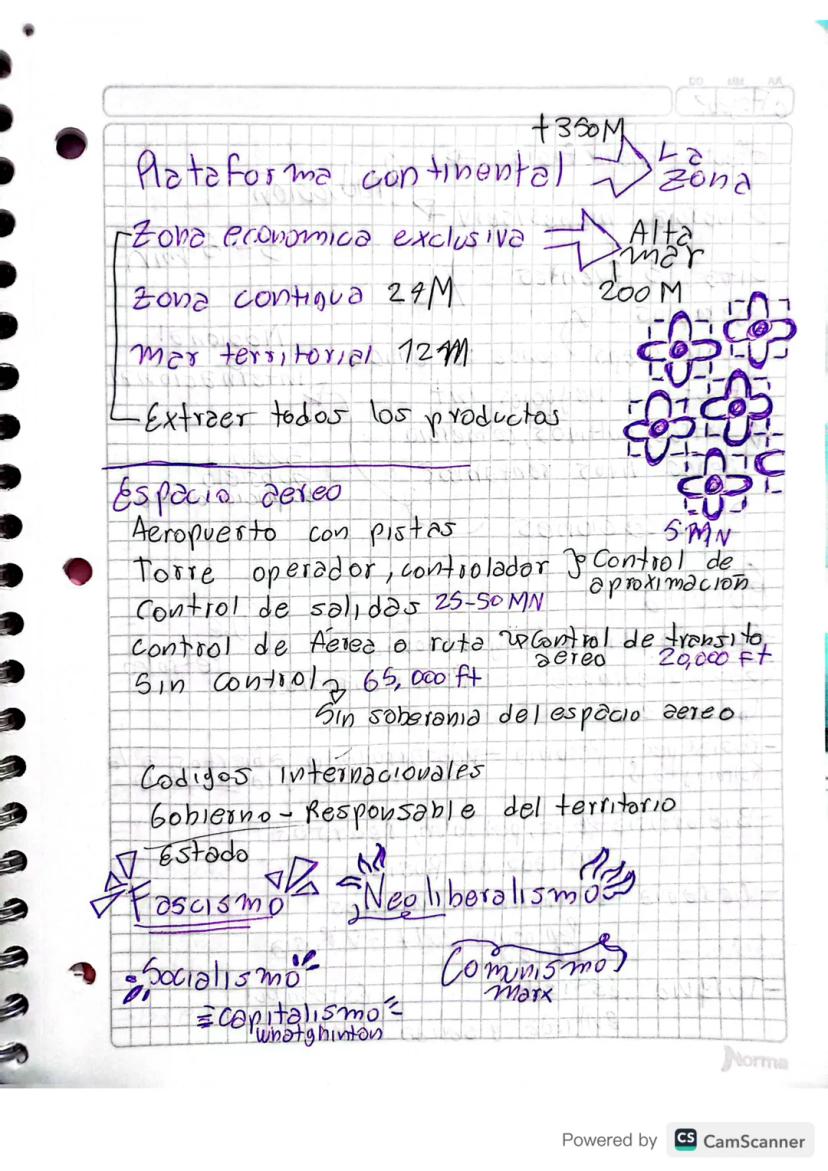 DD MM AA
+350M
Plataforma continental La
Zona
Zona economica exclusiva Alta
mar
Zona contigua 24M 200 M
mar territorial 12M
Extraer todos los productos
Espacio aereo
Aeropuerto con pistas 5 MN
Torre operador, controlador Control de
aproximación
Control de salidas 25-50 MN
control de Aérea o ruta Control de transito
aereo 20,000 Ft
Sin control 65,000 ft
Sin soberania del espacio aereo
Codigos internacionales
Gobierno - Responsable del territorio
Estado
Fascismo Neoliberalismo
Socialismo Comunismo
Marx
capitalismo
whatghinton
Norma
Powered by CS CamScanner